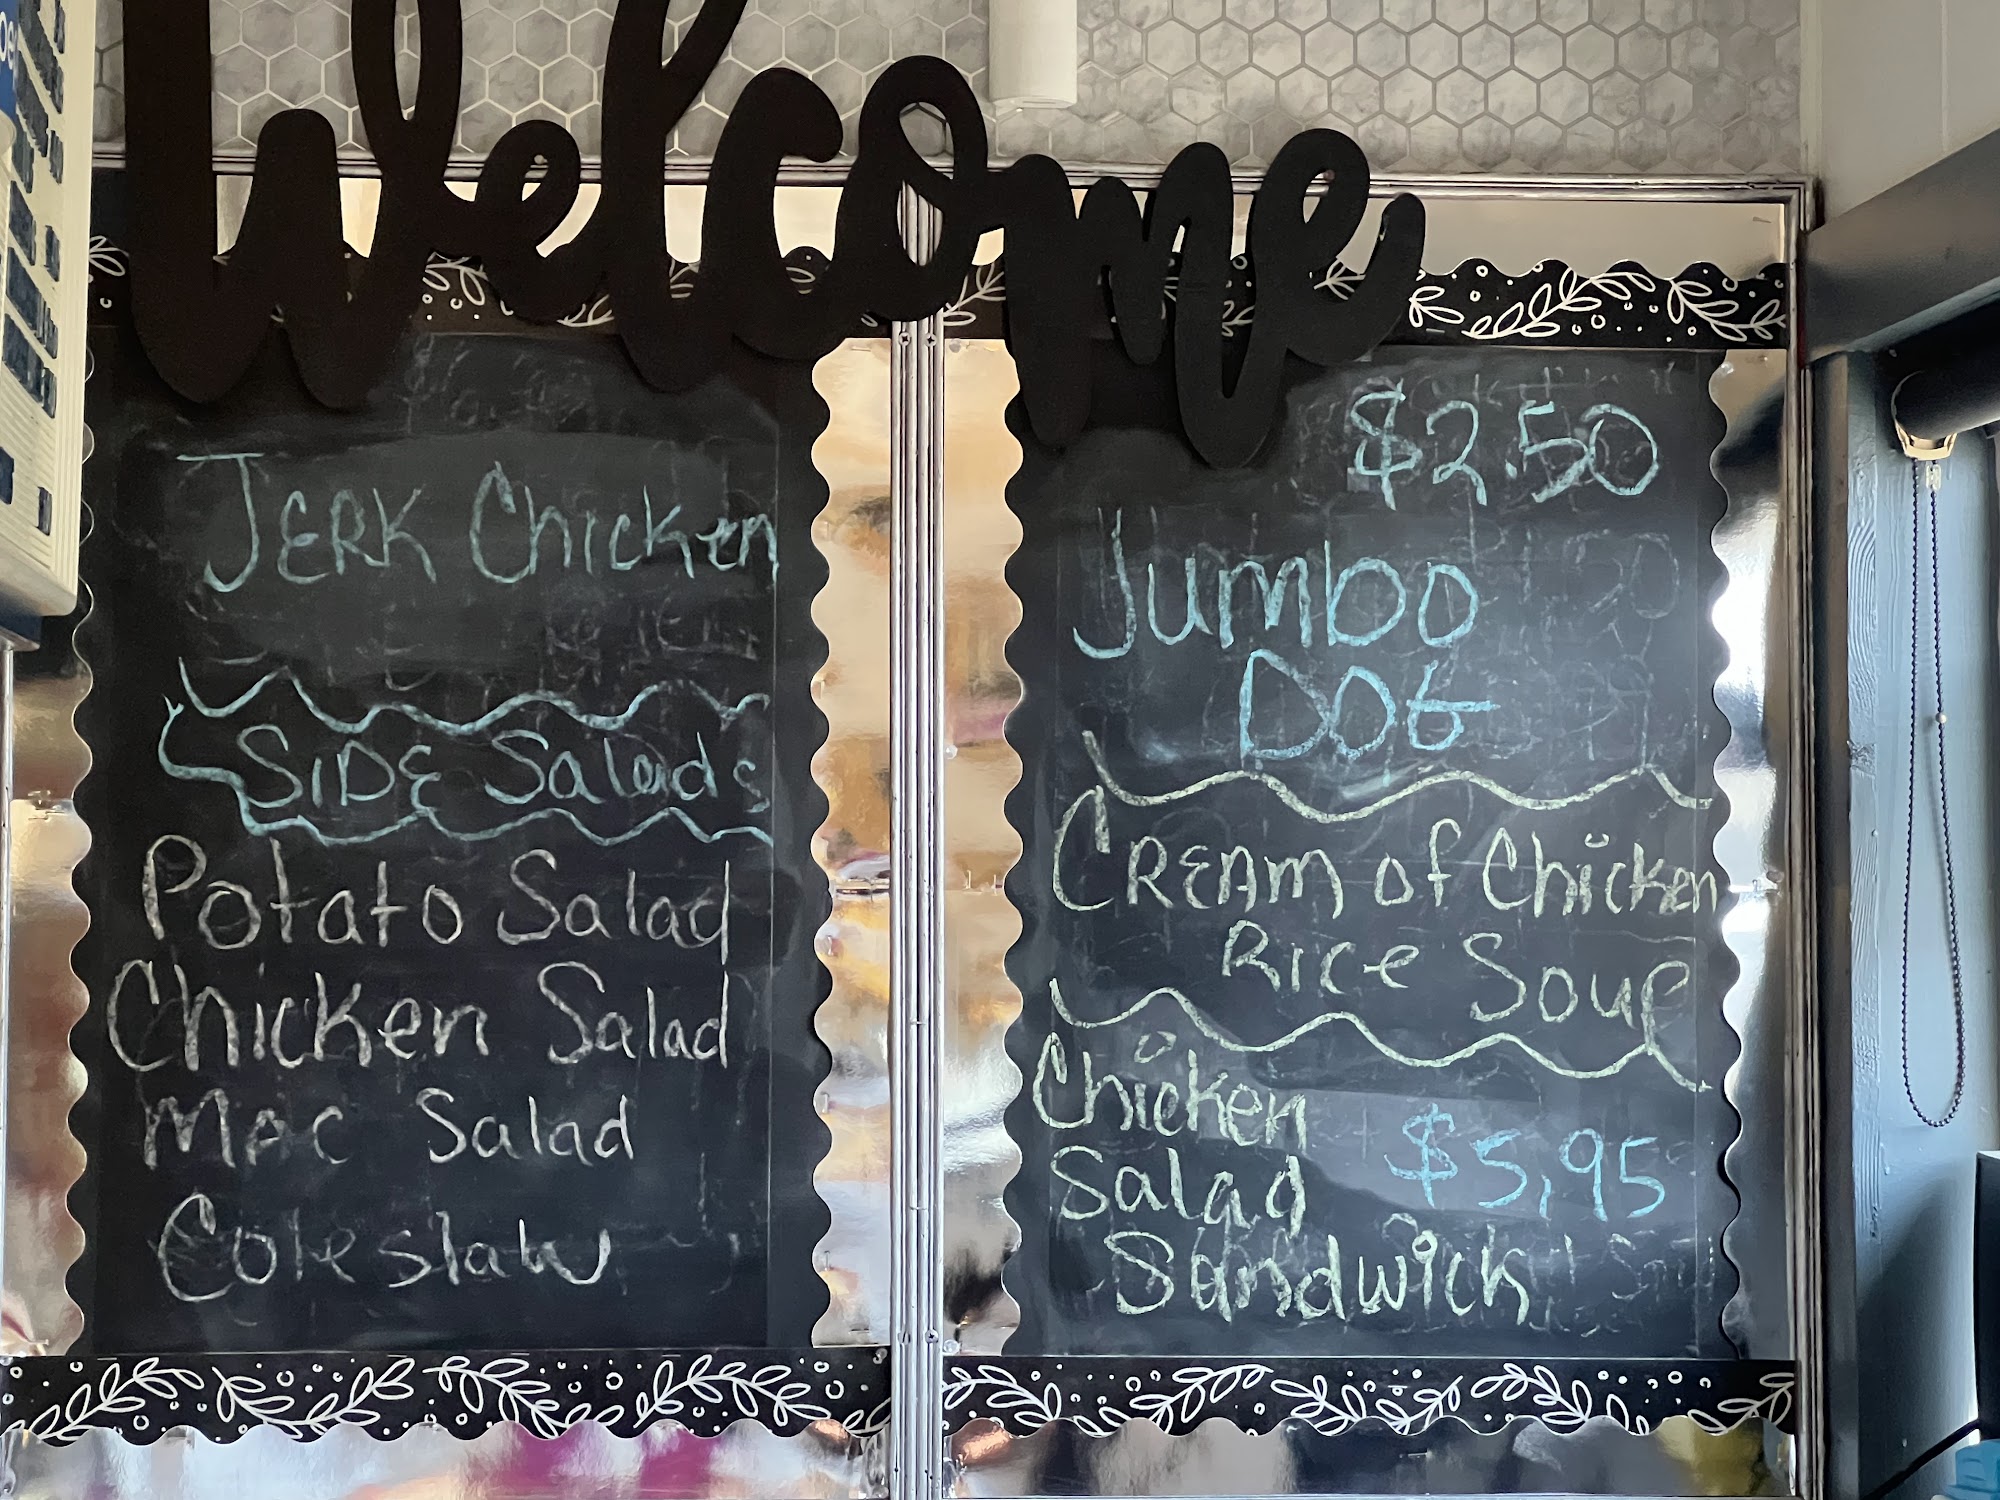 Welcome
JERK Chicken
SIDE Salads
Potato Salad
Chicken Salad
Mac Salad
Coleslaw
$2.50
Jumbo
DOG
CREAM of Chicken
RICE Soup
Chicken
Salad $5.95
Sandwich